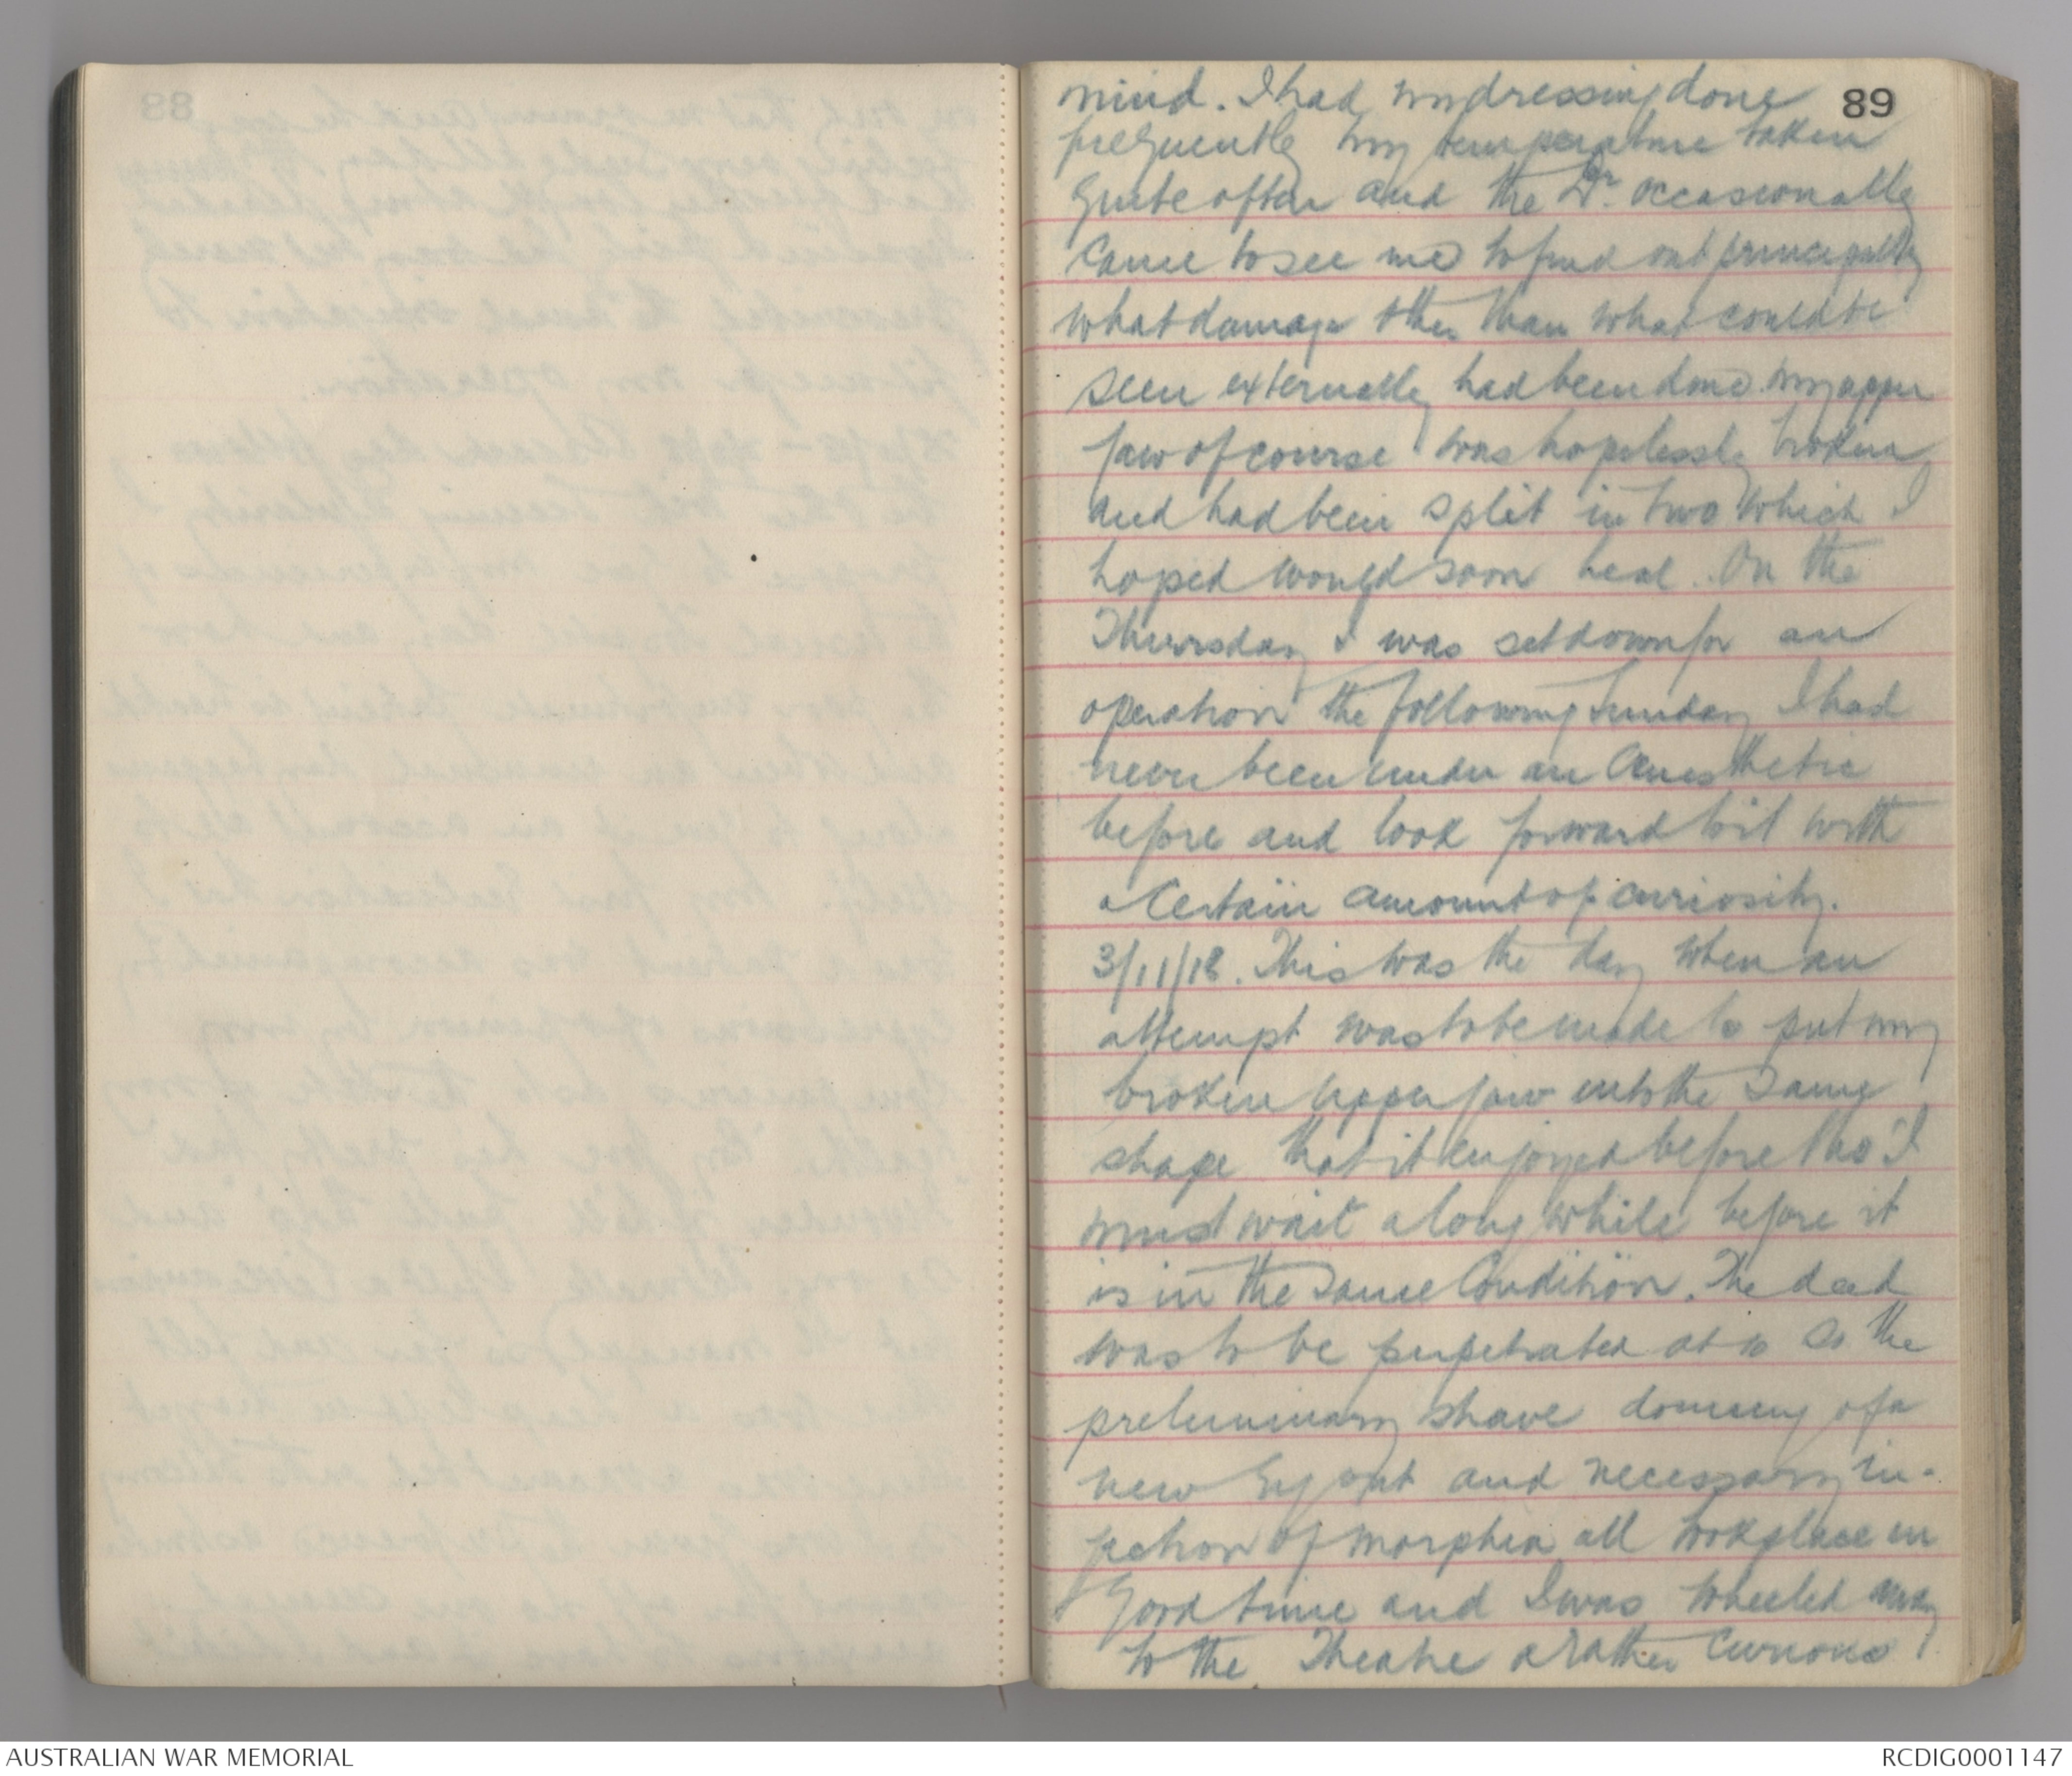 89
mind. I had my dressing done
frequently my temperature taken
quite often and the Dr. occasionally
came to see me to find out principally
what damage other than what could be
seen externally had been done. My upper
jaw of course was hopelessly broken
and had been split in two which I
hoped would soon heal. On the
Thursday I was set down for an
operation the following Sunday I had
never been under an Anesthetic
before and look forward to it with
a certain amount of curiosity.
3/11/18. This was the day when an
attempt was to be made to put my
broken upper jaw into the same
shape that it enjoyed before tho' I
must wait a long while before it
is in the same condition. The deed
was to be perpetrated at 10 so the
preliminary shave donning of a
new and necessary in-
jection of morphia all took place in
good time and I was wheeled away
to the Theatre a rather curious
AUSTRALIAN WAR MEMORIAL
RCDIG0001147